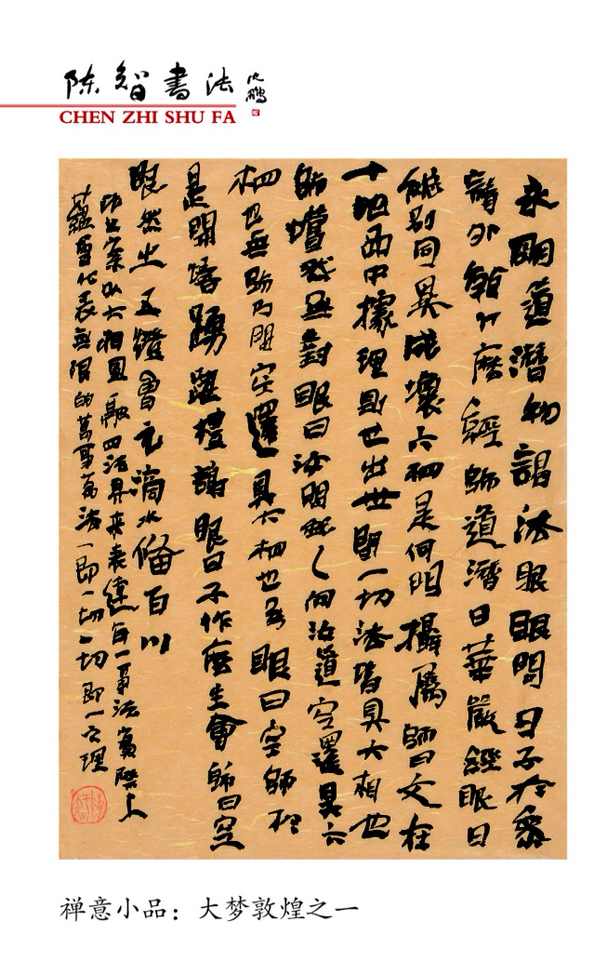 陈智書法
沈鹏
CHEN ZHI SHU FA
永明道潛初謁法眼眼問曰子於參
請外看什麽經師道潛曰華嚴經眼曰
總別同異成壞六相是何門攝屬師曰文在
十地中據理則世出世間一切法皆具六相也
師懵然無對眼曰汝問我向汝道空還具六
相也無師乃問空還具六相也無眼曰空師於
是開悟踴躍禮謝眼曰子作麼生會師曰空
眼然之五燈會元滴水百川
此公案以六相圓融四法界來表達每一事法實際上
蘊含代表無限的萬事萬法一即一切一切即一之理
禅意小品：大梦敦煌之一